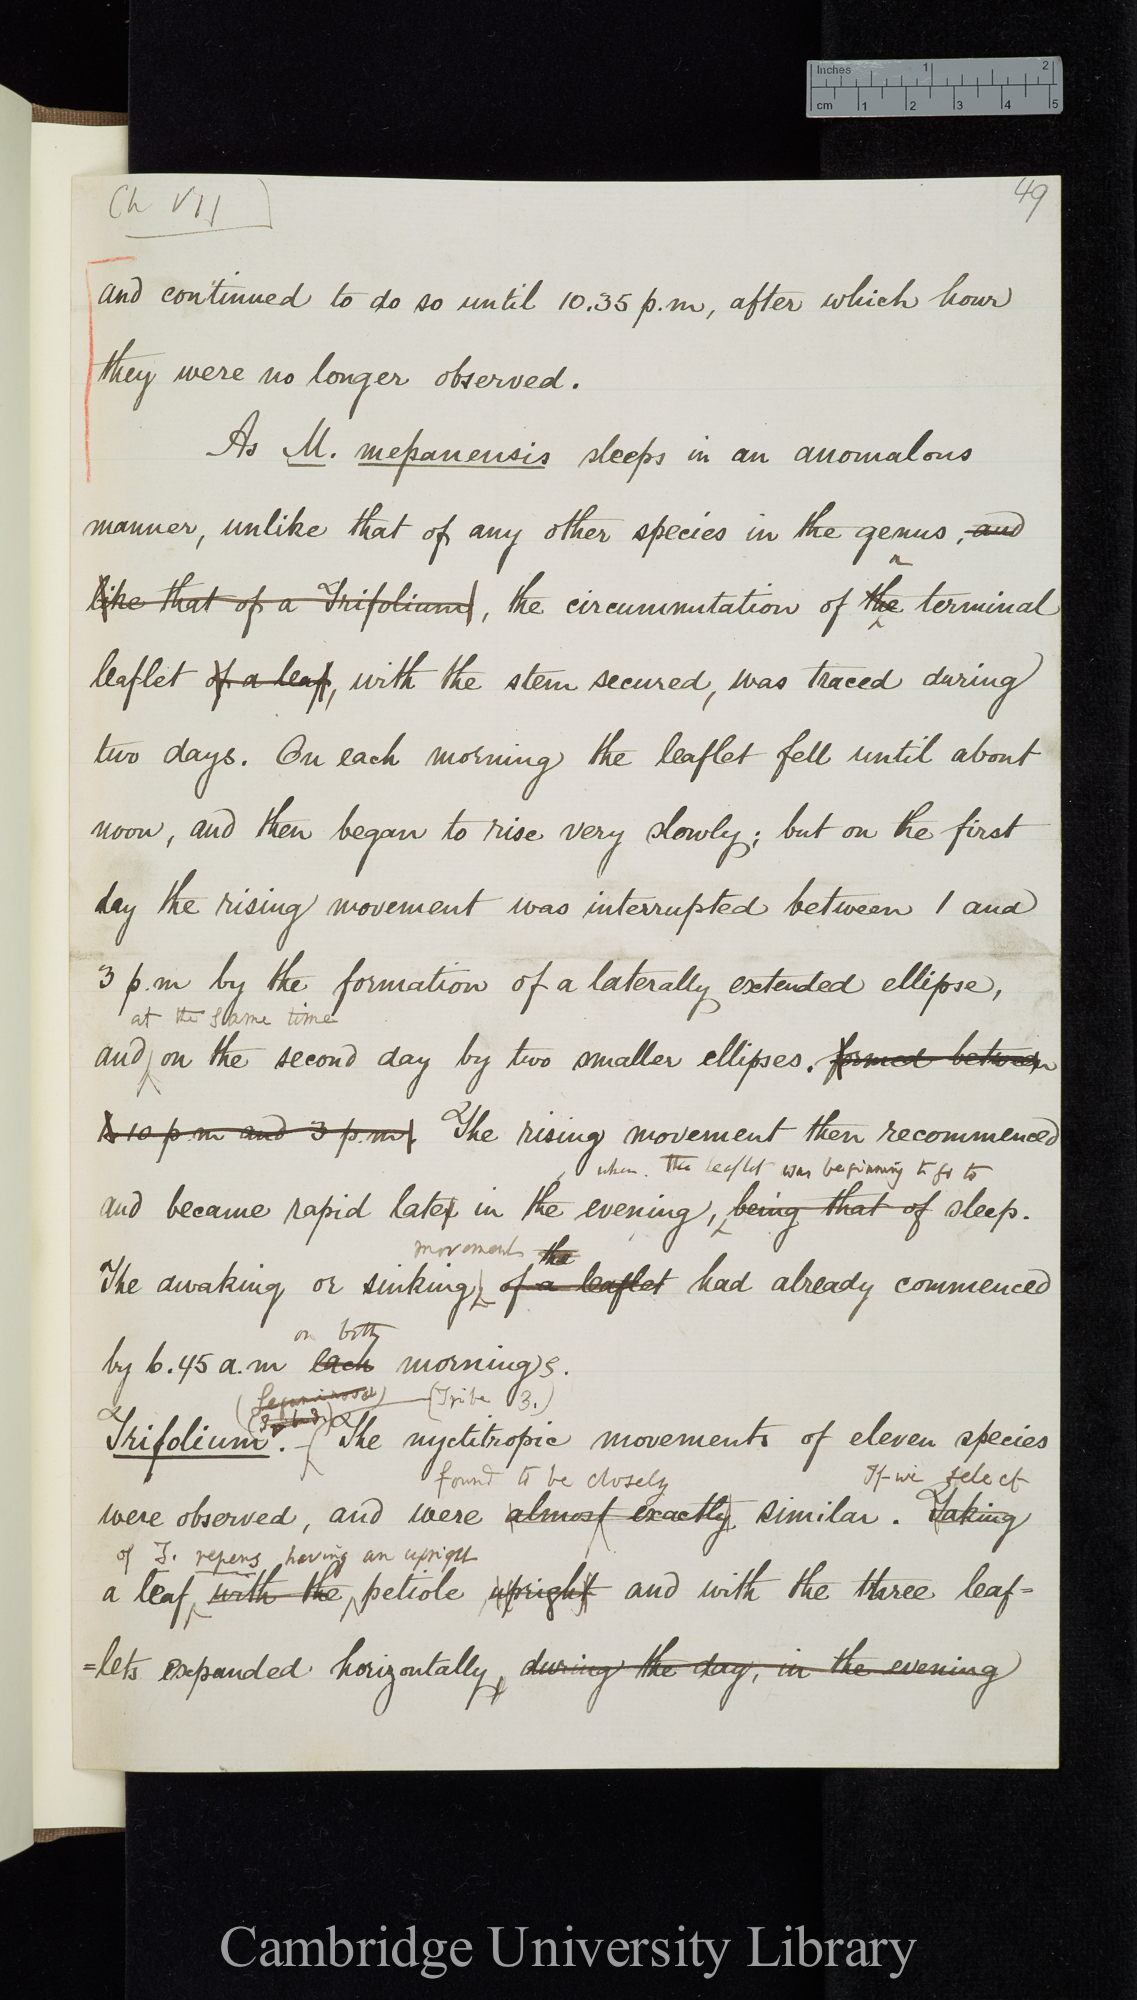 Inches 1 2
cm 1 2 3 4 5
Ch VII
49
and continued to do so until 10.35 p.m, after which hour
they were no longer observed.
As M. mepanensis sleeps in an anomalous
manner, unlike that of any other species in the genus, and
like that of a Trifolium, the circumnutation of the terminal
a
leaflet of a leaf, with the stem secured, was traced during
two days. On each morning the leaflet fell until about
noon, and then began to rise very slowly; but on the first
day the rising movement was interrupted between 1 and
3 p.m by the formation of a laterally extended ellipse,
at the same time
and on the second day by two smaller ellipses. formed between
10 p m and 3 p.m. The rising movement then recommenced
when the leaflet was beginning to go to
and became rapid later in the evening, being that of sleep.
movement the
The awaking or sinking of a leaflet had already commenced
on both
by 6.45 a.m each mornings.
(Leguminosæ) (Tribe 3.)
Trifolium. – The nyctitropic movements of eleven species
found to be closely If we select
were observed, and were almost exactly similar. Taking
of T. repens having an upright
a leaf with the petiole upright and with the three leaf=
=lets expanded horizontally, during the day, in the evening
Cambridge University Library